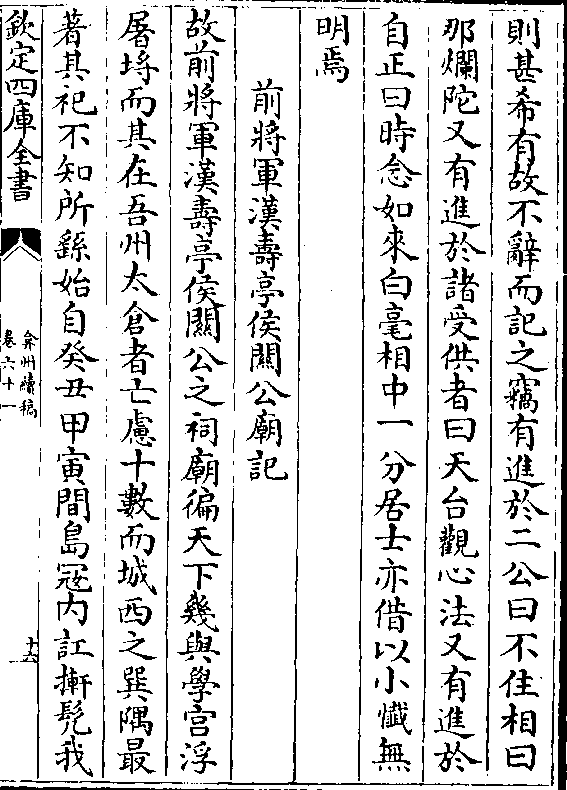 則甚希有故不辭而記之竊有進於二公曰不住相曰
那爛陀又有進於諸受供者曰天台觀心法又有進於
自正曰時念如來白毫相中一分居士亦借以小懺無
明焉
前將軍漢壽亭侯關公廟記
故前將軍漢壽亭侯關公之祠廟徧天下幾與學宫浮
屠埓而其在吾州太倉者亡慮十數而城西之巽隅最
著其祀不知所繇始自癸丑甲寅間島冦内訌搟髡我
欽定四庫全書
弇州續稿
卷六十一
十六